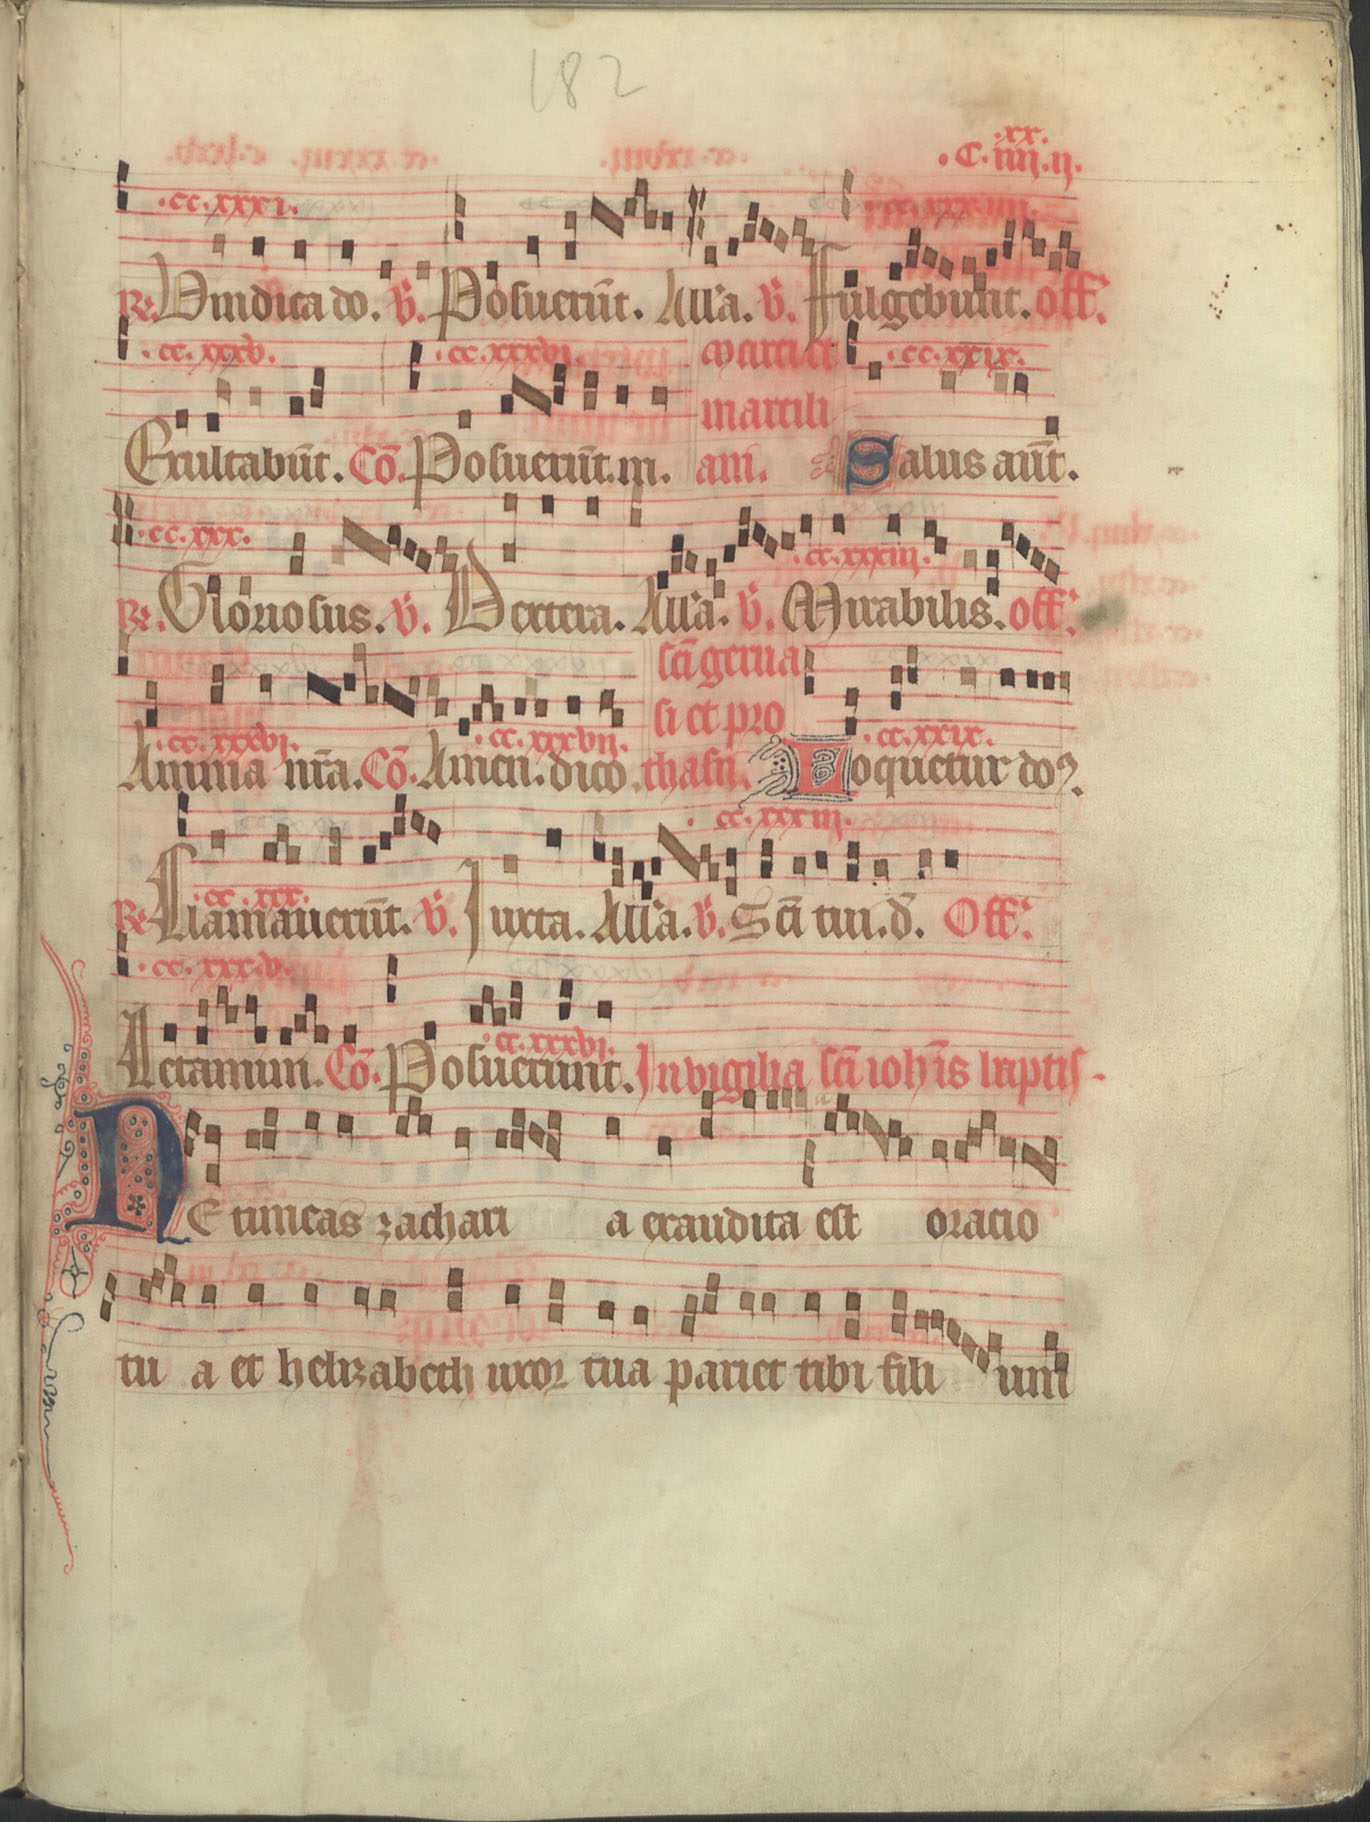 182
.xx.
.C.iiij.ij.
.cc.xxxi. .cc.xxx.iiij.
R. Vindica do. V. Posuerūt. Alla. V. Fulgebunt. off.
.cc.xxxv. .cc.xxxvi. Marci et .cc.xxix.
marcili
Exultabūt. Cō. Posuerūt. m. ani. Salus aūt.
.cc.xxx. .cc.xxxiii.
R. Gloriosus. V. Dextera. Alla. V. Mirabilis. off.
sc̄i gerua
si et pro
.cc.xxxvi. .cc.xxxvii. .cc.xxix.
Anima nr̄a. Cō. Amen. dico. thasii. Loquetur do
.cc.xxxiii.
.cc.xxx.
R. Clamauerūt. V. Iuxta. Alla. V. Sc̄i tui. d̄. Off.
.cc.xxx.v.
.cc.xxxvi.
Letamini. Cō. Posuerunt. In vigilia sc̄i ioh̄is baptis-
NE timeas zachari a exaudita est oracio
tu a et helizabeth uxor tua pariet tibi fili um